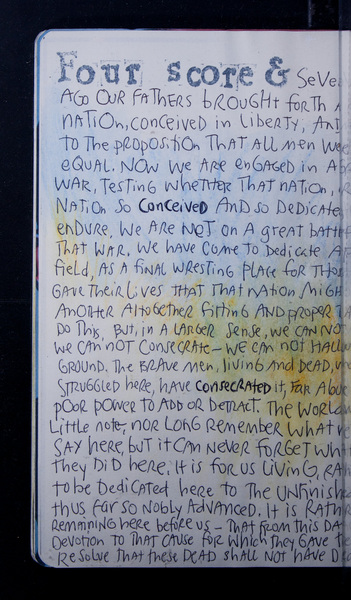 Four score & Seve
AGO OUR FATHERS BROUGHT FORTH A
NATION, CONCEIVED IN LIBERTY, AN
TO THE PROPOSITION THAT ALL MEN WE
EQUAL. NOW WE ARE ENGAGED IN A
WAR, TESTING WHETHER THAT NATION,
NATION SO CONCEIVED AND SO DEDICATE
ENDURE. WE ARE NOT ON A GREAT BATTE
THAT WAR. WE HAVE COME TO DEDICATE A
FIELD, AS A FINAL WRESTING PLACE FOR THOS
GAVE THEIR LIVES THAT THAT NATION MIGH
ANOTHER ALTOGETHER FITTING AND PROPER
DO THIS, BUT, IN A LARGER SENSE, WE CAN NO
WE CAN NOT CONSECRATE – WE CAN NOT HALLO
GROUND. THE BRAVE MEN, LIVING AND DEAD, W
STRUGGLED HERE, HAVE CONSECRATED IT, FAR ABOV
POOR POWER TO ADD OR DETRACT. THE WORLD
LITTLE NOTE, NOR LONG REMEMBER WHAT WE
SAY HERE, BUT IT CAN NEVER FORGET WHA
THEY DID HERE. IT IS FOR US LIVING, RA
TO BE DEDICATED HERE TO THE UNFINISHE
THUS FAR SO NOBLY ADVANCED. IT IS RATH
REMAINING HERE BEFORE US – THAT FROM THIS DA
DEVOTION TO THAT CAUSE FOR WHICH THEY GAVE
RESOLVE THAT THESE DEAD SHALL NOT HAVE D